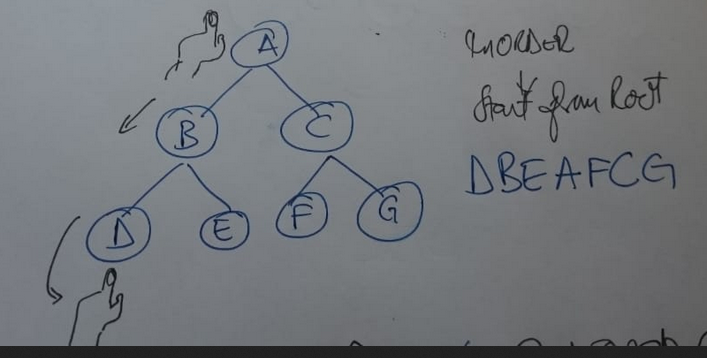 A
B C
D E F G
INORDER
Start from Root
DBEAFCG